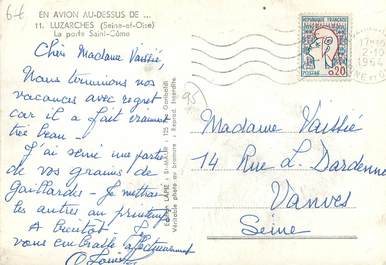 6t
EN AVION AU-DESSUS DE ...
11. LUZARCHES (Seine-et-Oise)
La porte Saint-Côme
Chère Madame Vaissié,
Nous terminons nos
vacances avec regret
car il a fait vraiment
très beau -
J'ai semé une partie
de vos graines de
Gaillardes - Je mettrai
les autres au printemps
A bientôt - Je
vous embrasse affectueusement
95
RÉPUBLIQUE FRANÇAISE
POSTES 0,20
1964
Madame Vaissié
14 Rue L. Dardenne
Vanves
Seine
Véritable photo au bromure - Reprod. Interdite